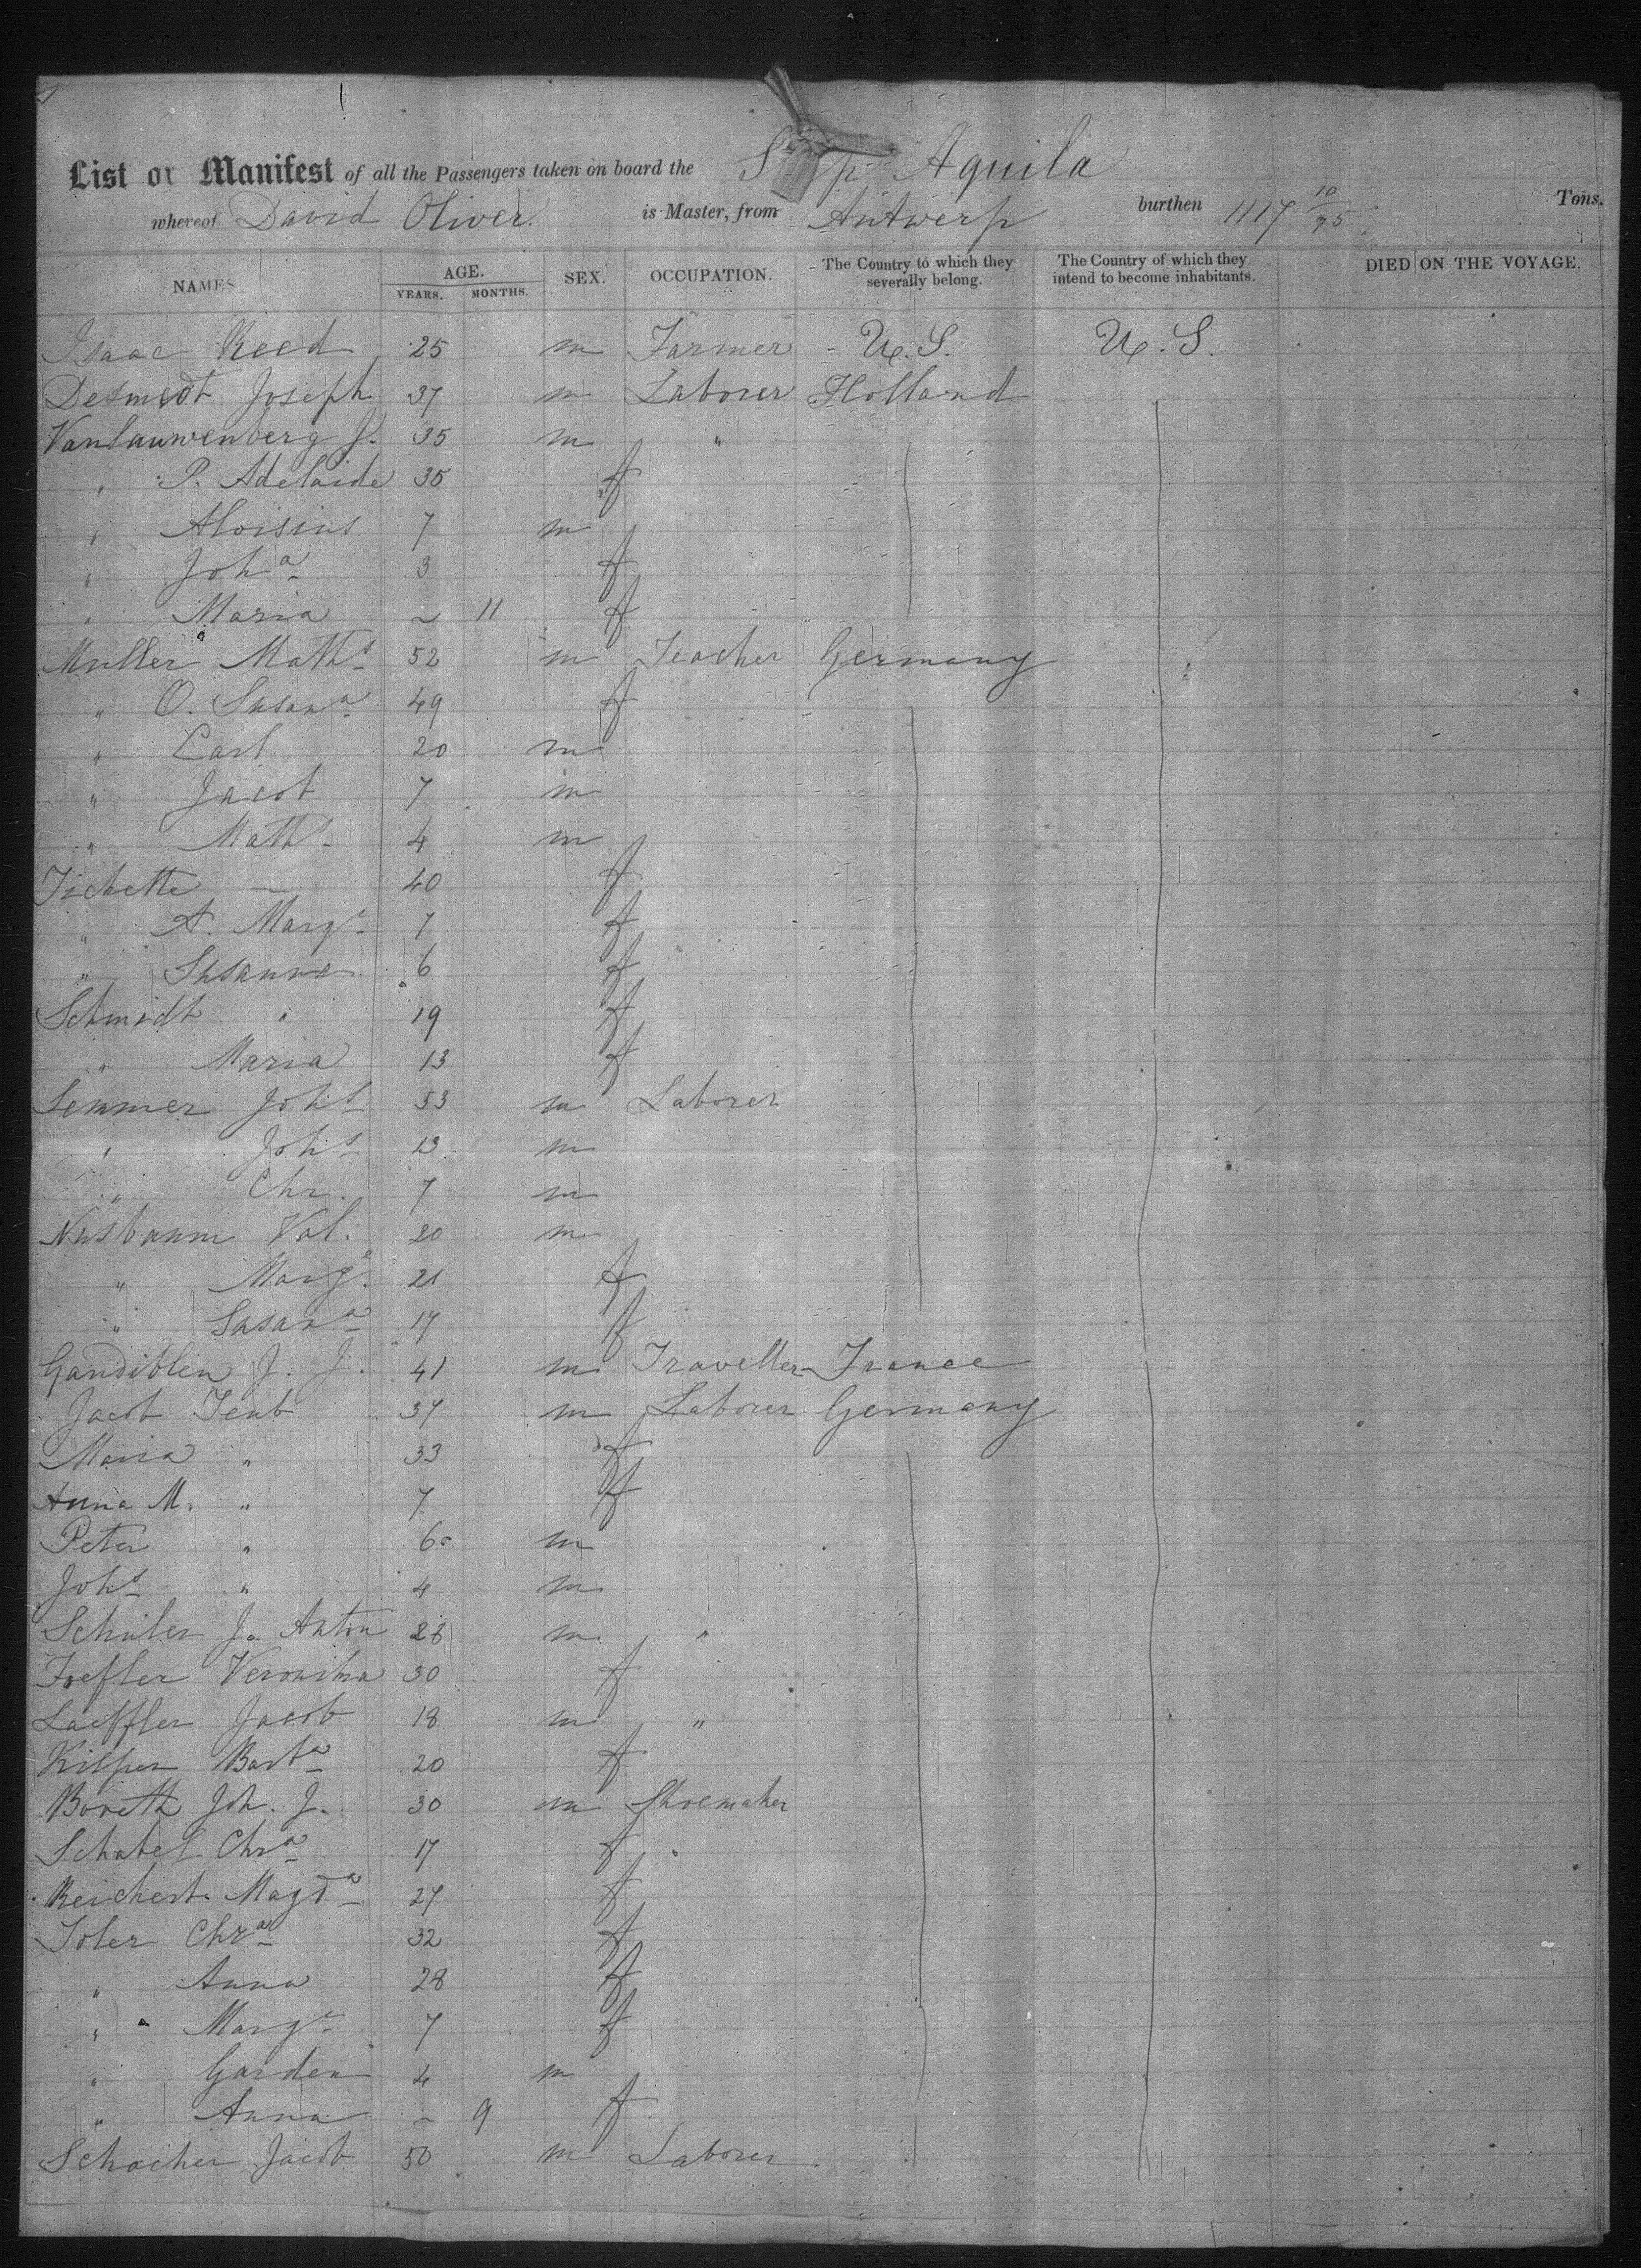 List or Manifest of all the Passengers taken on board the Ship Aquila
whereof David Oliver. is Master, from Antwerp burthen 1117 10/95 Tons.
NAMES AGE. YEARS. MONTHS. SEX. OCCUPATION. The Country to which they severally belong. The Country of which they intend to become inhabitants. DIED ON THE VOYAGE.
Isaac Reed 25 m Farmer U.S. U.S.
Desmedt Joseph 37 m Laborer Holland
Vanlauwenberg J. 35 m "
" P. Adelaide 35 f
" Aloisius 7 m
" Joha 3 f
" Maria ~ 11 f
Muller Maths 52 m Teacher Germany "
" O. Susana 49 f
" Carl 20 m
" Jacob 7 m
" Maths 4 m
Tichette — 40 f
" A. Marge 7 f
" Susanna 6 f
Schmidt " 19 f
" Maria 13 f
Semmer Johs 53 m Laborer
" Johs 13 m
" Chr. 7 m
Nusbaum Val. 20 m
" Marge. 21 f
" Susana 17 f
Gandiblen J. J. 41 m Traveller France
Jacob Teub 37 m Laborer Germany
Maria " 33 f
Anna M. " 7 f
Peter " 6 m
Johs " 4 m
Schuler J. Anton 28 m "
Toefler Veronika 30 f
Laeffler Jacob 18 m "
Kilper Barba 20 f
Boreth Joh. J. 30 m Shoemaker
Schabel Chra 17 f
Reichert Magda 27 f
Toler Chra 32 f
" Anna 28 f
" Marge 7 f
" Garden 4 m
" Anna ~ 9 f
Schacher Jacob 50 m Laborer